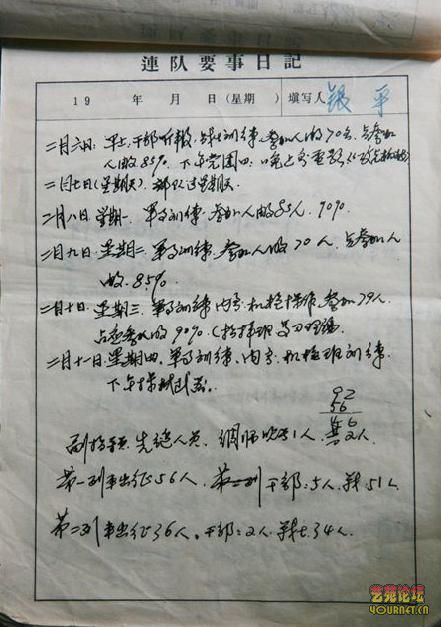 連队要事日記
19 年 月 日(星期 ) 填写人 银平
二月六日: 早上,干部听报,战士训练,参加人数70名,占参加
人数85%. 下午党团
二月七日(星期天). 部队过星期天.
二月八日 星期一. 军事训练. 参加人数 人. 90%.
二月九日. 星期二. 军事训练. 参加人数70人. 占参加人
数. 85%.
二月十日. 星期三. 军事训练内容: 机枪操作. 参加79人.
占应参加数90%. (指挥班 学习理论.
二月十一日. 星期四. 军事训练、内容: 机枪班训练.
下午擦拭武器.
92
56
46
副指导员 先遣人员. 1人. 共2人.
第一列车出征56人. 第一列 干部: 5人. 战: 51人
第二列车出征36人. 干部: 2人. 战士. 34人.
艺苑论坛
YOURNET.CN